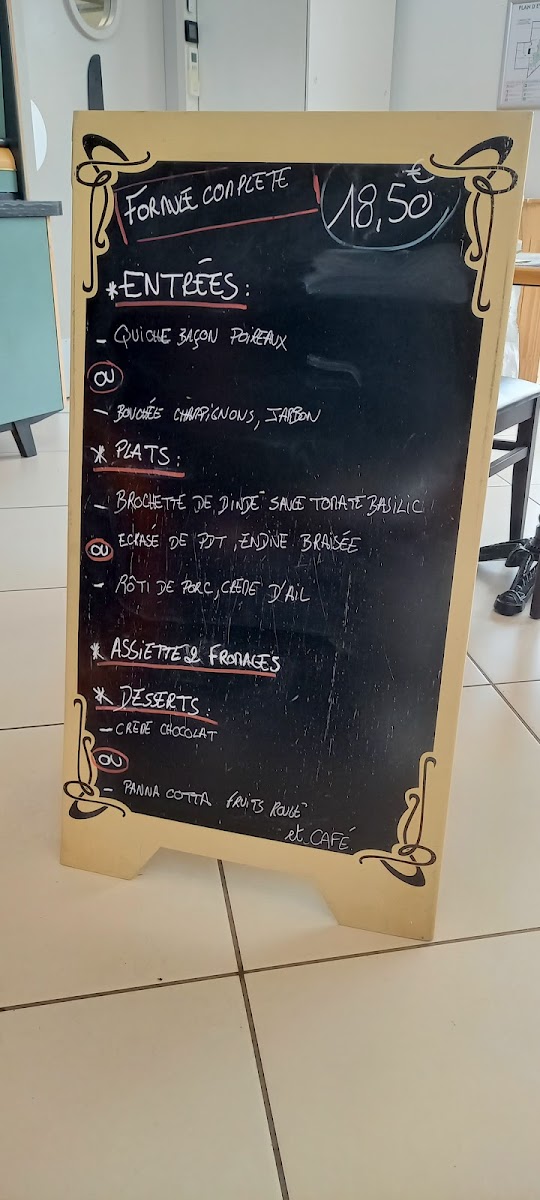 FORMULE COMPLETE 18,50€
* ENTRÉES :
- QUICHE BAÇON POIREAUX
OU
- BOUCHÉE CHAMPIGNONS, JAMBON
* PLATS :
- BROCHETTE DE DINDE SAUCE TOMATE BASILIC
ECRASÉ DE PDT, ENDIVE BRAISÉE
OU
- RÔTI DE PORC, CREME D'AIL
* ASSIETTE 2 FROMAGES
* DESSERTS :
- CREME CHOCOLAT
OU
- PANNA COTTA FRUITS ROUGE
et CAFÉ